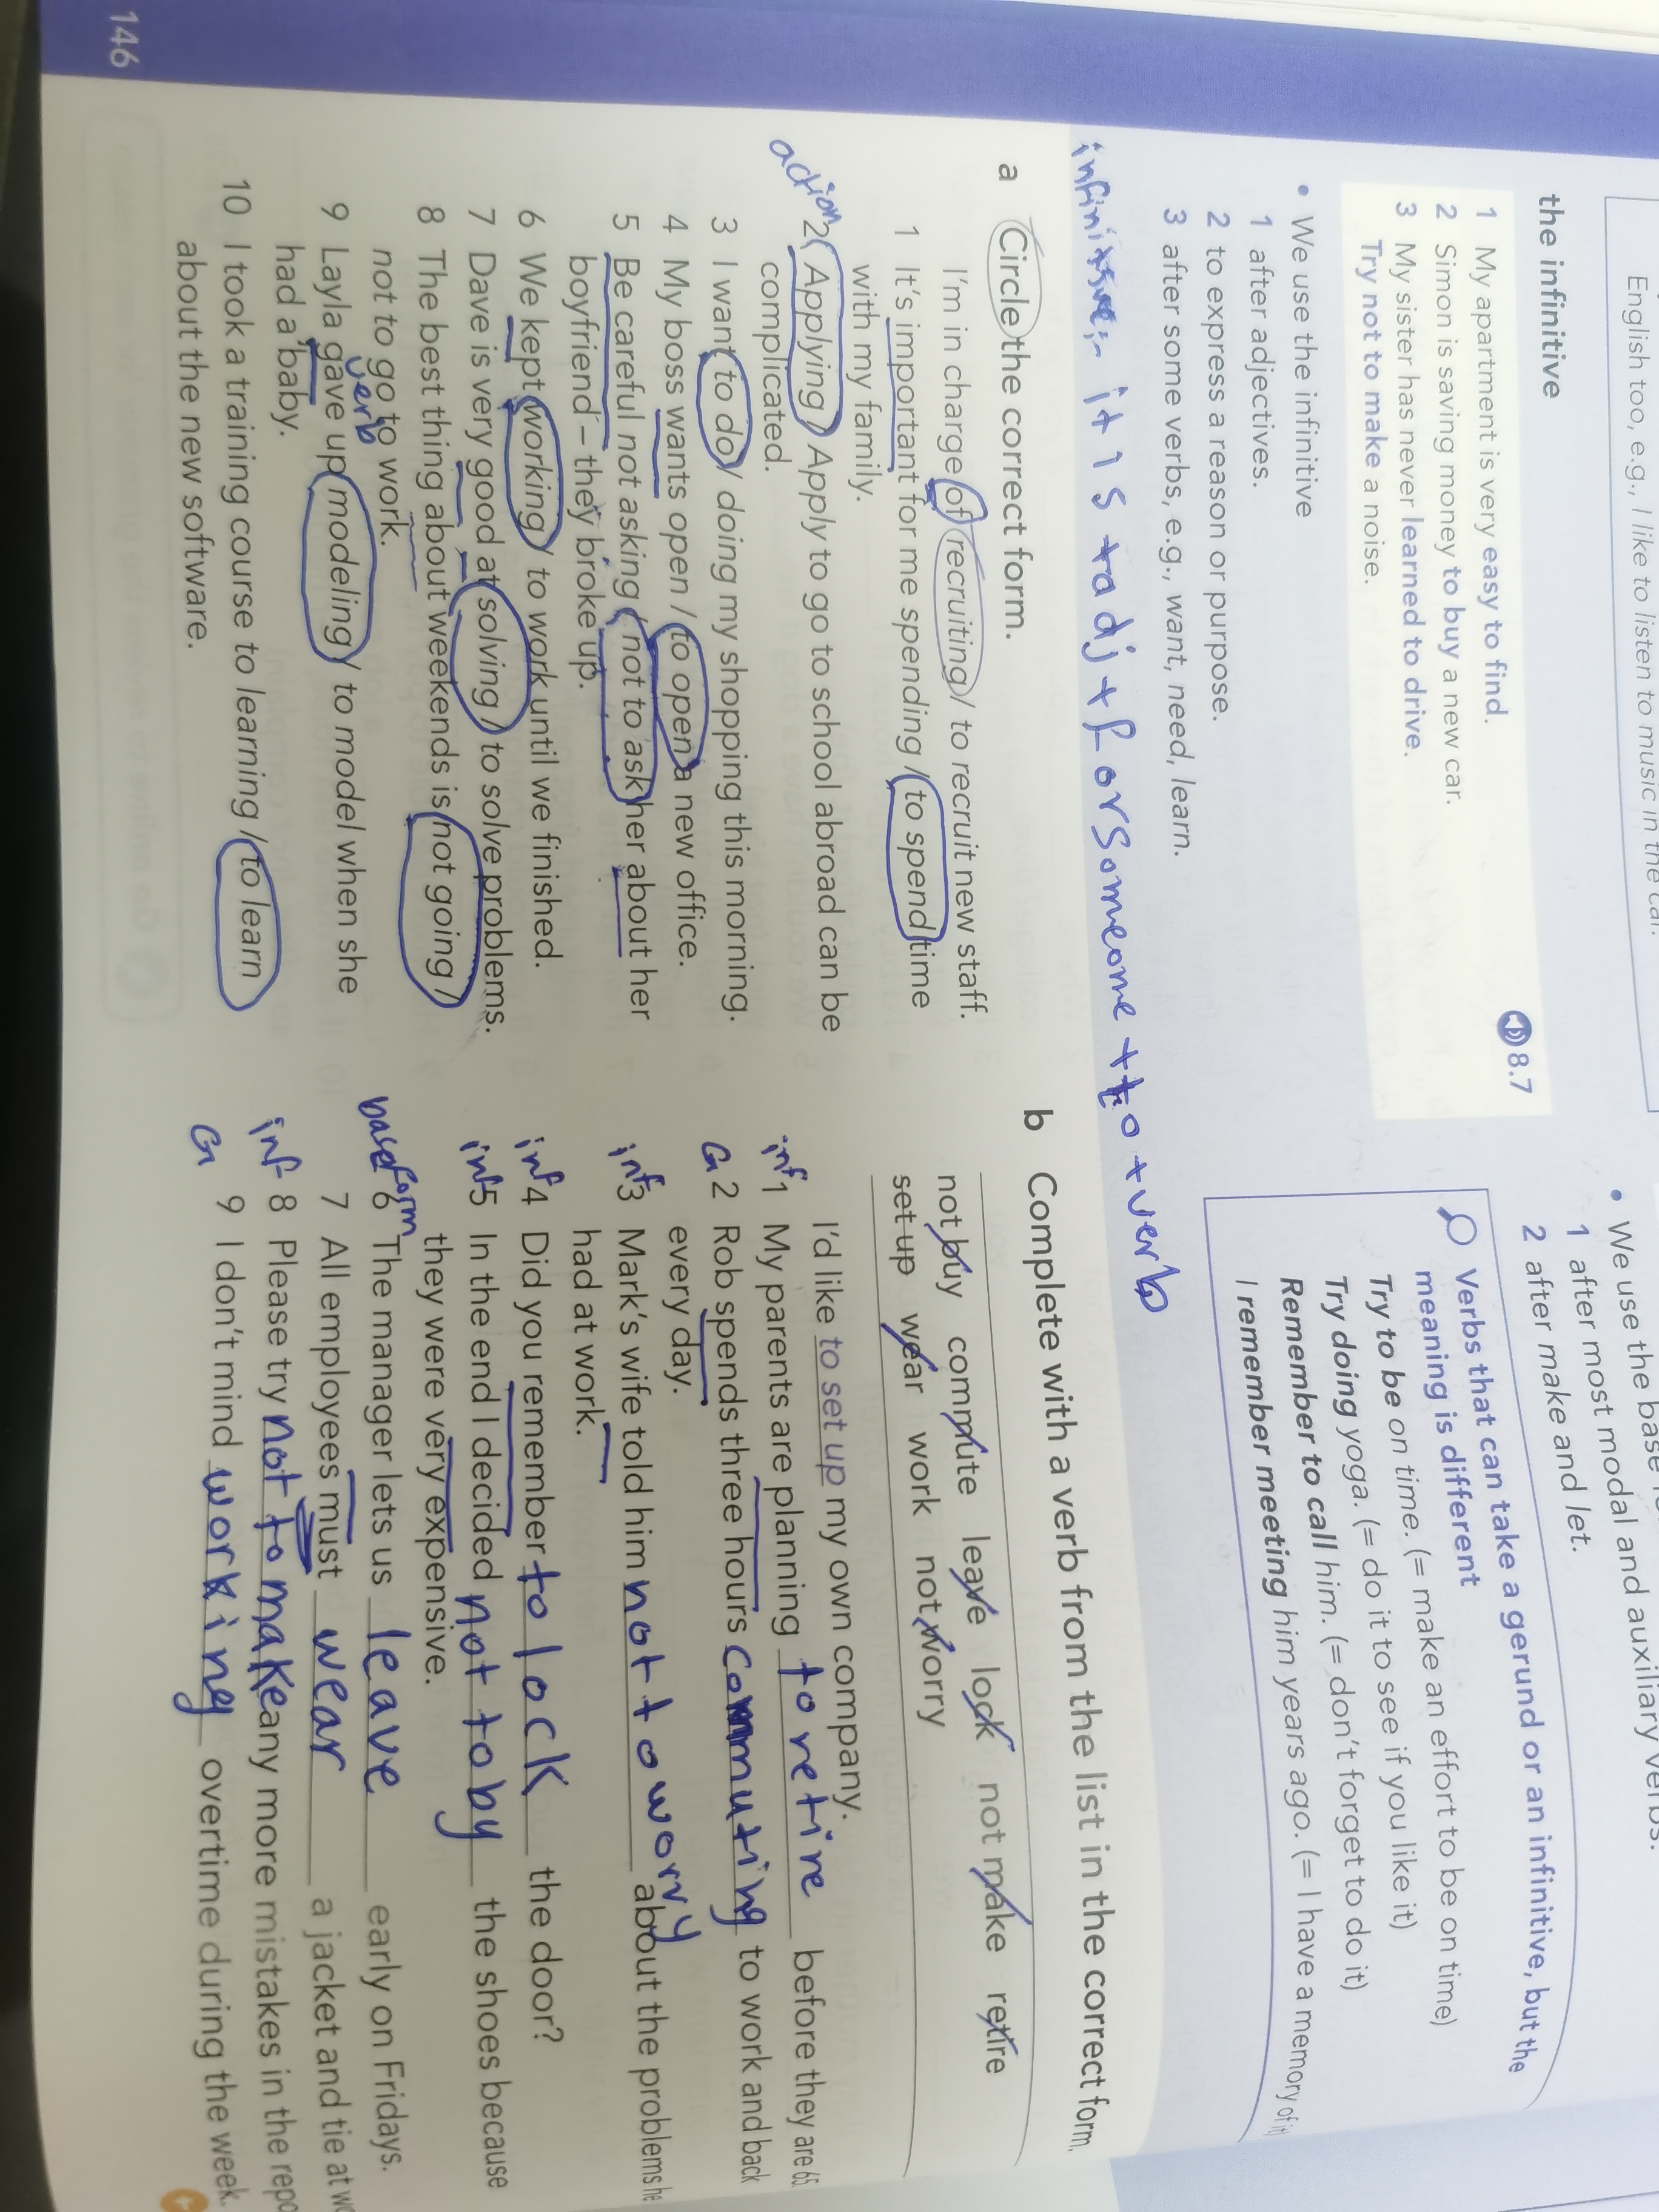 English too, e.g., I like to listen to music in the car.
the infinitive
8.7
1 My apartment is very easy to find.
2 Simon is saving money to buy a new car.
3 My sister has never learned to drive.
Try not to make a noise.
• We use the infinitive
1 after adjectives.
2 to express a reason or purpose.
3 after some verbs, e.g., want, need, learn.
• We use the base
1 after most modal and auxiliary verbs.
2 after make and let.
Verbs that can take a gerund or an infinitive, but the
meaning is different
Try to be on time. (= make an effort to be on time)
Try doing yoga. (= do it to see if you like it)
Remember to call him. (= don't forget to do it)
I remember meeting him years ago. (= I have a memory of it)
it is + adj + for someome + to + verb
a Circle the correct form.
I'm in charge of recruiting / to recruit new staff.
1 It's important for me spending / to spend time
with my family.
action
2 Applying / Apply to go to school abroad can be
complicated.
3 I want to do / doing my shopping this morning.
4 My boss wants open / to open a new office.
5 Be careful not asking / not to ask her about her
boyfriend – they broke up.
6 We kept working / to work until we finished.
7 Dave is very good at solving / to solve problems.
8 The best thing about weekends is not going /
not to go to work.
verb
9 Layla gave up modeling / to model when she
had a baby.
10 I took a training course to learning / to learn
about the new software.
b Complete with a verb from the list in the correct form.
not buy commute leave lock not make retire
set up wear work not worry
I'd like to set up my own company.
inf 1 My parents are planning to retire before they are 65.
G 2 Rob spends three hours commuting to work and back
every day.
inf 3 Mark's wife told him not to worry about the problems he
had at work.
inf 4 Did you remember to lock the door?
inf 5 In the end I decided not to by the shoes because
they were very expensive.
base form 6 The manager lets us leave early on Fridays.
7 All employees must wear a jacket and tie at
inf 8 Please try not to make any more mistakes in the
G 9 I don't mind working overtime during the week.
146